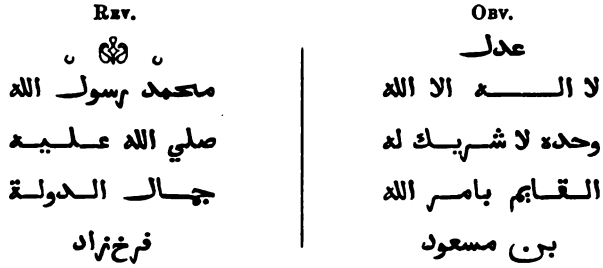 Rev.
محمد رسول الله
صلي الله عليه
جمال الدولة
فرخ زاد
Obv.
عدل
لا اله الا الله
وحده لا شريك له
القايم بامر الله
بن مسعود